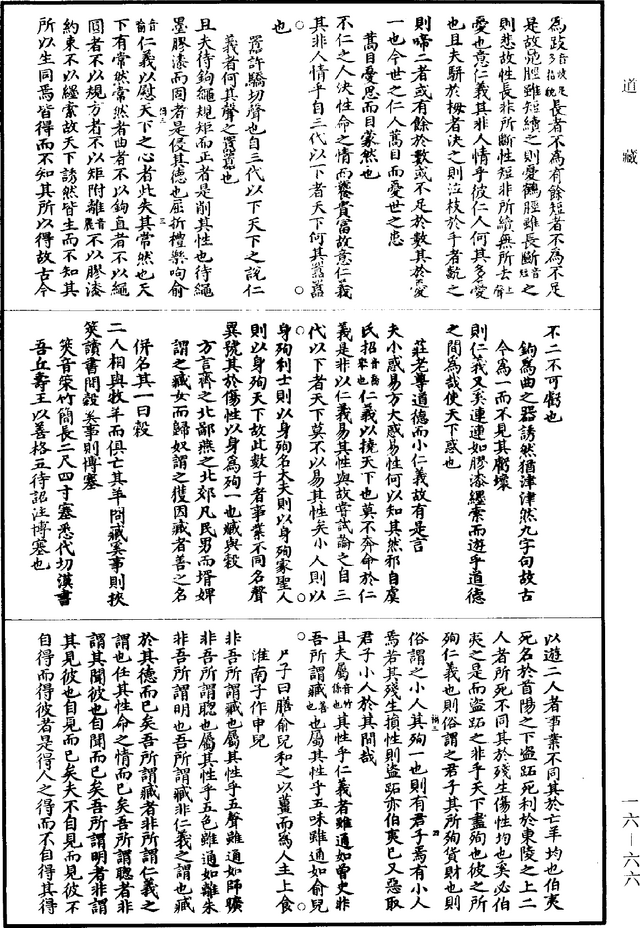 道藏
為跂音岐足多指貌長者不為有餘短者不為不足
是故鳧脛雖短續之則憂鶴脛雖長斷音短之
則悲故性長非所斷性短非所續無所去上聲
憂也意仁義其非人情乎彼仁人何其多憂
也且夫駢於拇者決之則泣枝於手者齕之
則啼二者或有餘於數或不足於數其於憂
一也今世之仁人蒿目而憂世之患
蒿目憂思而目蒙然也
不仁之人決性命之情而饕貴富故意仁義
其非人情乎自三代以下者天下何其囂囂
也
囂許驕切聲也自三代以下天下之說仁
義者何其聲之囂囂也
且夫待鉤繩規矩而正者是削其性也待繩
墨膠漆而固者是侵其德也屈折禮樂呴俞
音臾仁義以慰天下之心者此失其常然也天
下有常然常然者曲者不以鉤直者不以繩
圓者不以規方者不以矩附離音麗不以膠漆
約束不以纆索故天下誘然皆生而不知其
所以生同焉皆得而不知其所以得故古今
不二不可虧也
鉤為曲之器誘然猶津津然九字句故古
今為一而不見其虧壞
則仁義又奚連連如膠漆纆索而遊乎道德
之間為哉使天下惑也
莊老尊道德而小仁義故有是言
夫小惑易方大惑易性何以知其然邪自虞
氏招仁義以撓天下也莫不奔命於仁
義是非以仁義易其性與故嘗試論之自三
代以下者天下莫不以易其性矣小人則以
身殉利士則以身殉名大夫則以身殉家聖人
則以身殉天下故此數子者事業不同名聲
異號其於傷性以身為殉一也臧與穀
方言齊之北鄙燕之北郊凡民男而壻婢
謂之臧女而歸奴謂之獲因臧者善之名
併名其一曰穀
二人相與牧羊而俱亡其羊問臧奚事則挾
筴讀書問穀奚事則博塞
筴音策竹簡長二尺四寸塞悉代切漢書
吾丘壽王以善格五待詔注博塞也
以遊二人者事業不同其於亡羊均也伯夷
死名於首陽之下盜跖死利於東陵之上二
人者所死不同其於殘生傷性均也奚必伯
夷之是而盜跖之非乎天下盡殉也彼之所
殉仁義也則俗謂之君子其所殉貨財也則
俗謂之小人其殉一也則有君子焉有小人
焉若其殘生損性則盜跖亦伯夷已又惡取
君子小人於其間哉
且夫屬其性乎仁義者雖通如曾史非
吾所謂臧善也也屬其性乎五味雖通如俞兒
尸子曰膳俞兒和之以薑而為人主上食
淮南子作申兒
非吾所謂臧也屬其性乎五聲雖通如師曠
非吾所謂聰也屬其性乎五色雖通如離朱
非吾所謂明也吾所謂臧非仁義之謂也臧
於其德而已矣吾所謂臧者非所謂仁義之
謂也任其性命之情而已矣吾所謂聰者非
謂其聞彼也自聞而已矣吾所謂明者非謂
其見彼也自見而已矣夫不自見而見彼不
自得而得彼者是得人之得而不自得其得
一六—六六